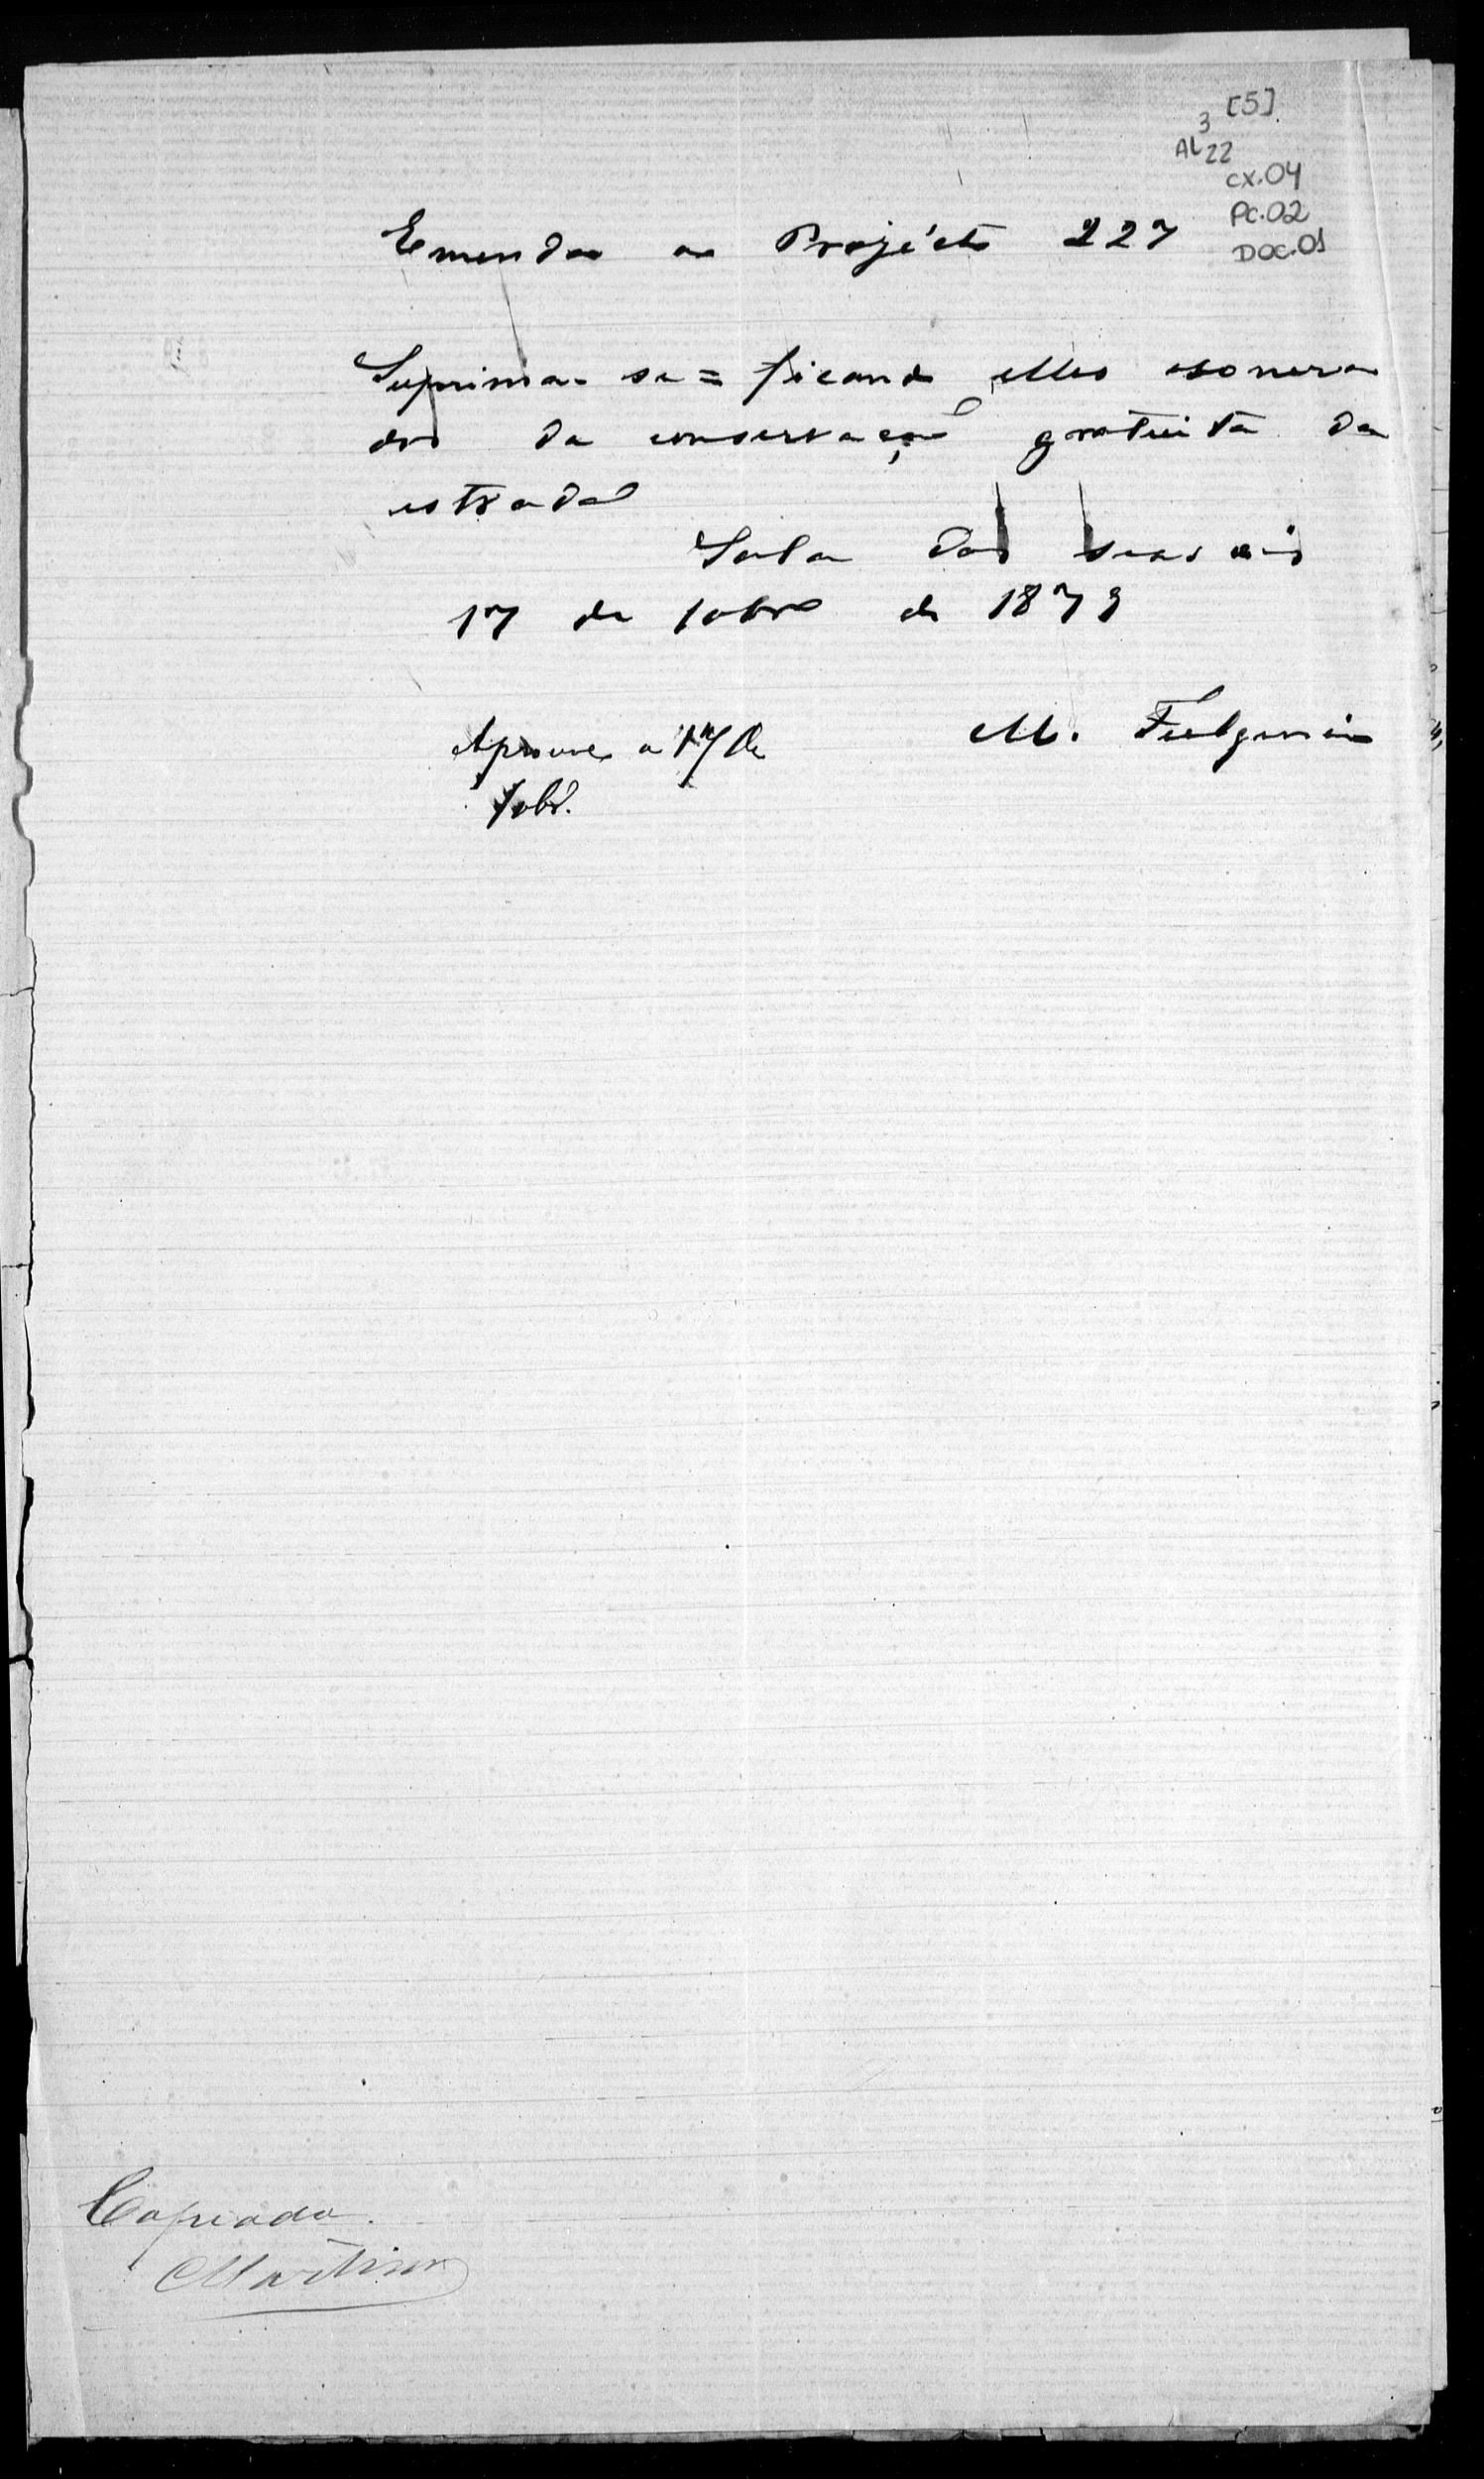 [5]
3
AL 22
CX.04
PC.02
DOC.01
Emenda ao Projécto 227
Suprima-se = ficando elles esonera
dos da conservação gratuita da
estrada
Sala das sessois
17 de 10brº de 1879
M. Fulgencio
Aprove a 17 de
10brº.
Copiada.
Martins